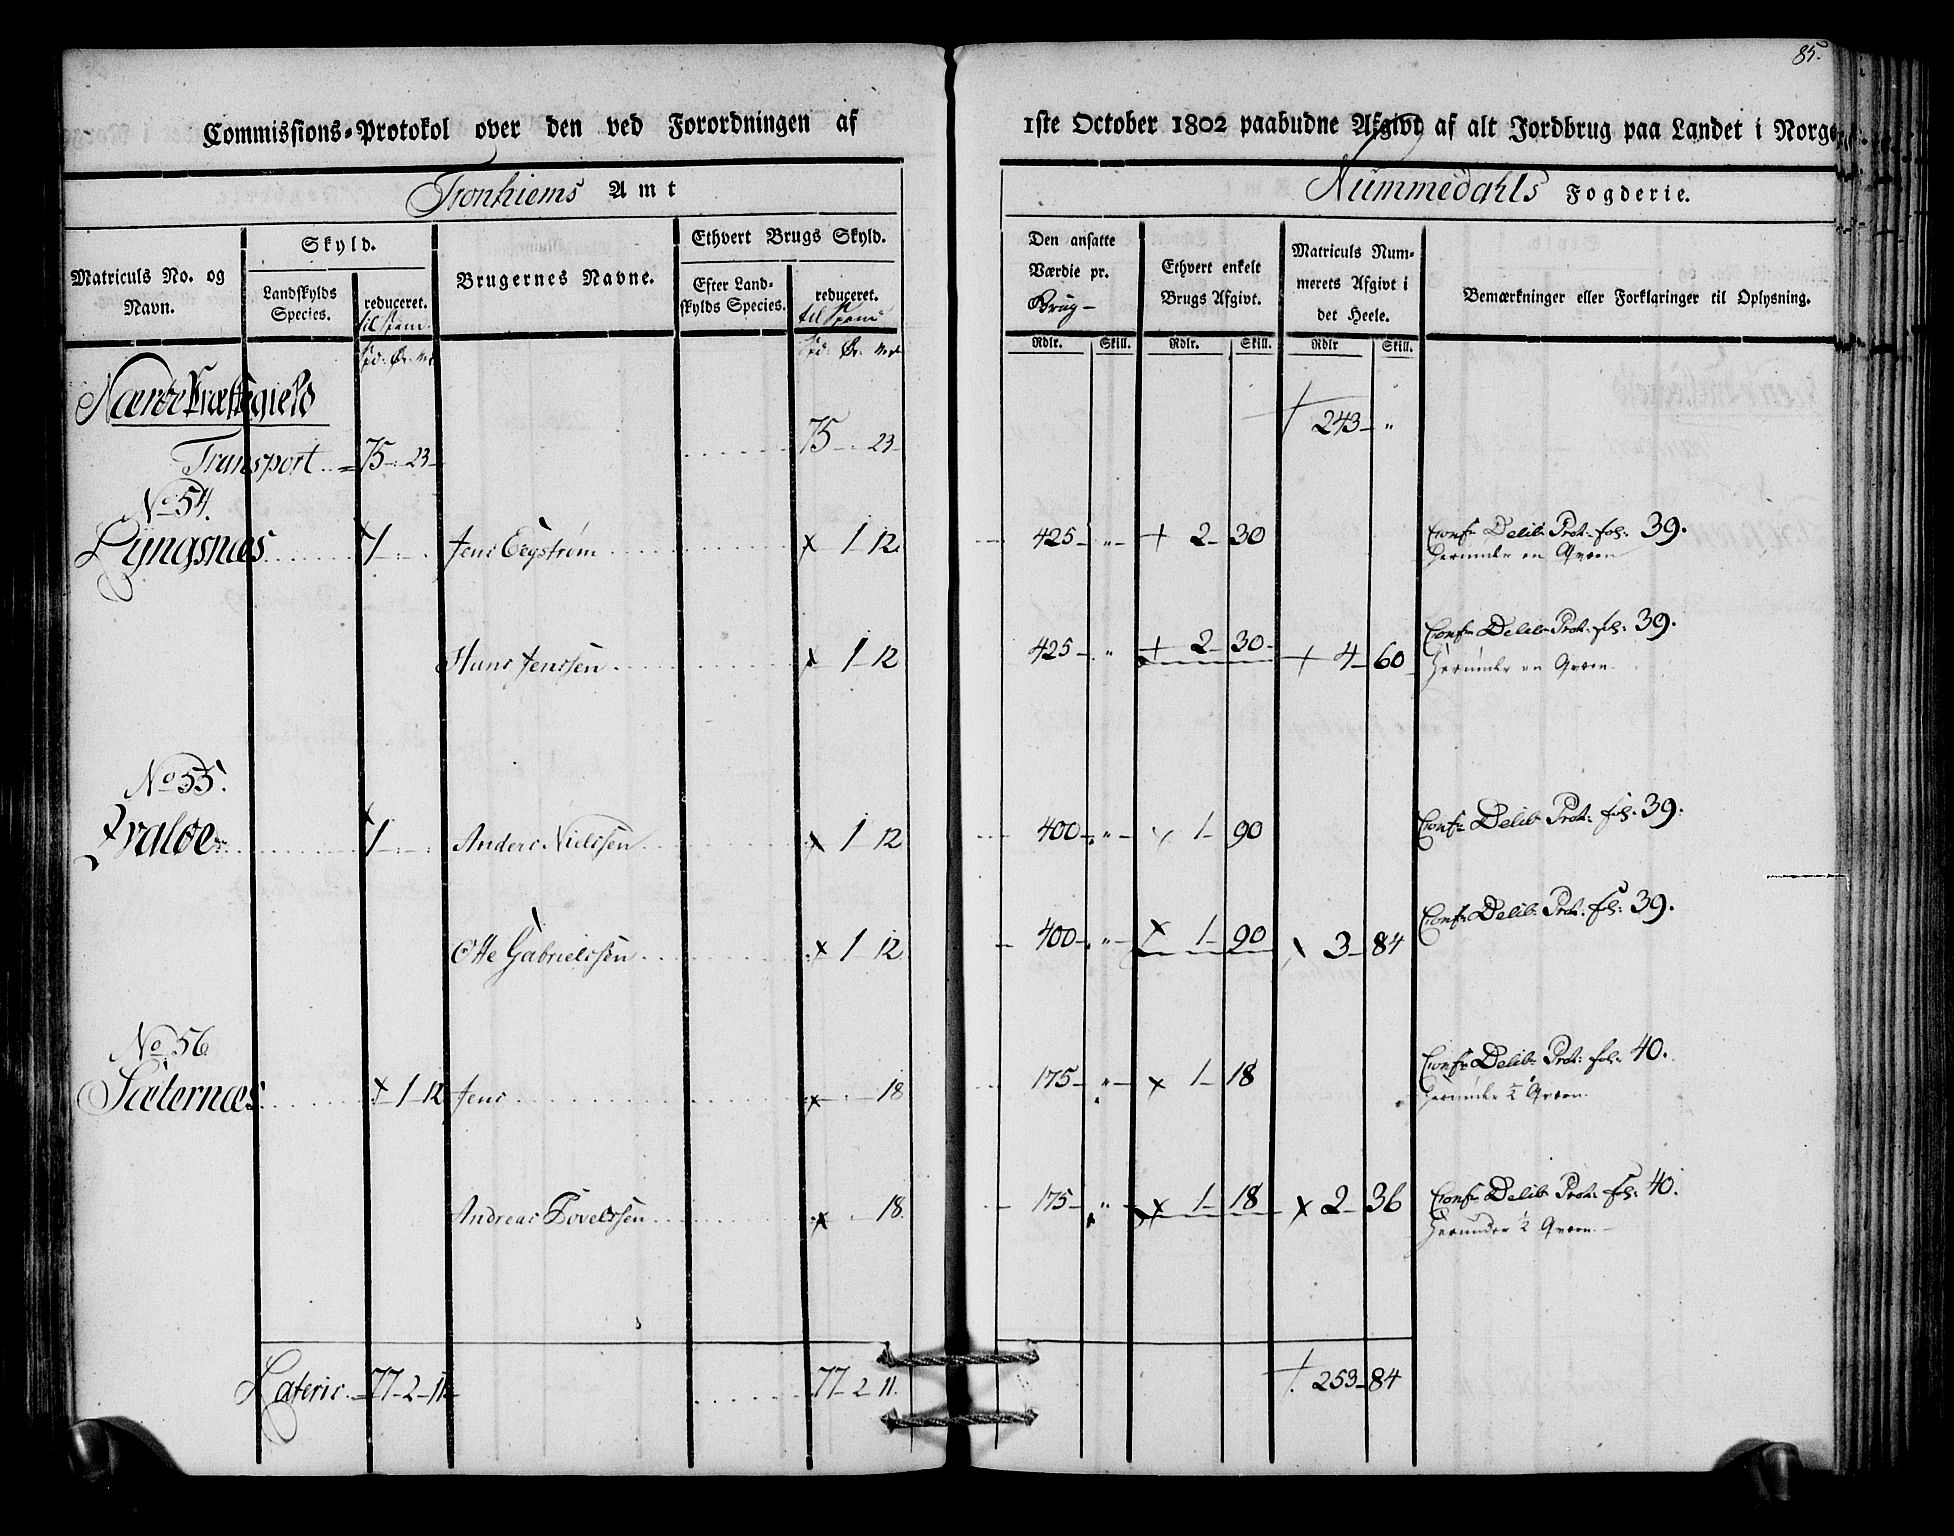 85.
Commissions-Protokol over den ved Forordningen af 1ste October 1802 paabudne Afgivt af alt Jordbrug paa Landet i Norge
Tronhiems Amt
Nummedahls Fogderie.
Matriculs No. og Navn.
Skyld.
Landskylds Species.
reduceret.
Brugernes Navne.
Ethvert Brugs Skyld.
Efter Landskylds Species.
reduceret.
Den ansatte Værdie pr. Brug-
Ethvert enkelt Brugs Afgivt.
Matriculs Nummerets Afgivt i det Heele.
Bemærkninger eller Forklaringer til Oplysning.
Rdlr. Skill. Rdlr. Skill. Rdlr Skill.
Nærøe Præstegield
Transport 75 - 23 75 - 23 243 - "
No 54.
Lyngsnæs 1 Jens Eegstrøm 1 12 425 - " 2 - 30 Conf Delib Prot. fol: 39.
Herunder en Qværn
Hans Jenssen 1 12 425 - " 2 - 30 4 - 60 Conf Delib Prot. fol: 39.
Herunder en Qværn
No 55.
Qvaløe 1 Anders Nielssen 1 12 400 - " 1 - 90 Conf Delib Prot. fol: 39.
Otte Gabrielssen 1 12 400 - " 1 - 90 3 - 84 Conf Delib Prot. fol: 39.
No 56
Sæternæs 1 - 12 Jens 18 175 - " 1 - 18 Conf Delib Prot: fol: 40.
Herunder ½ Qværn
Andreas Povelssen 18. 175 - " 1 - 18 2 - 36 Conf Delib Prot. fol: 40.
Herunder ½ Qværn
Lateris 77 - 2 - 11 77 - 2 11. 253 - 84